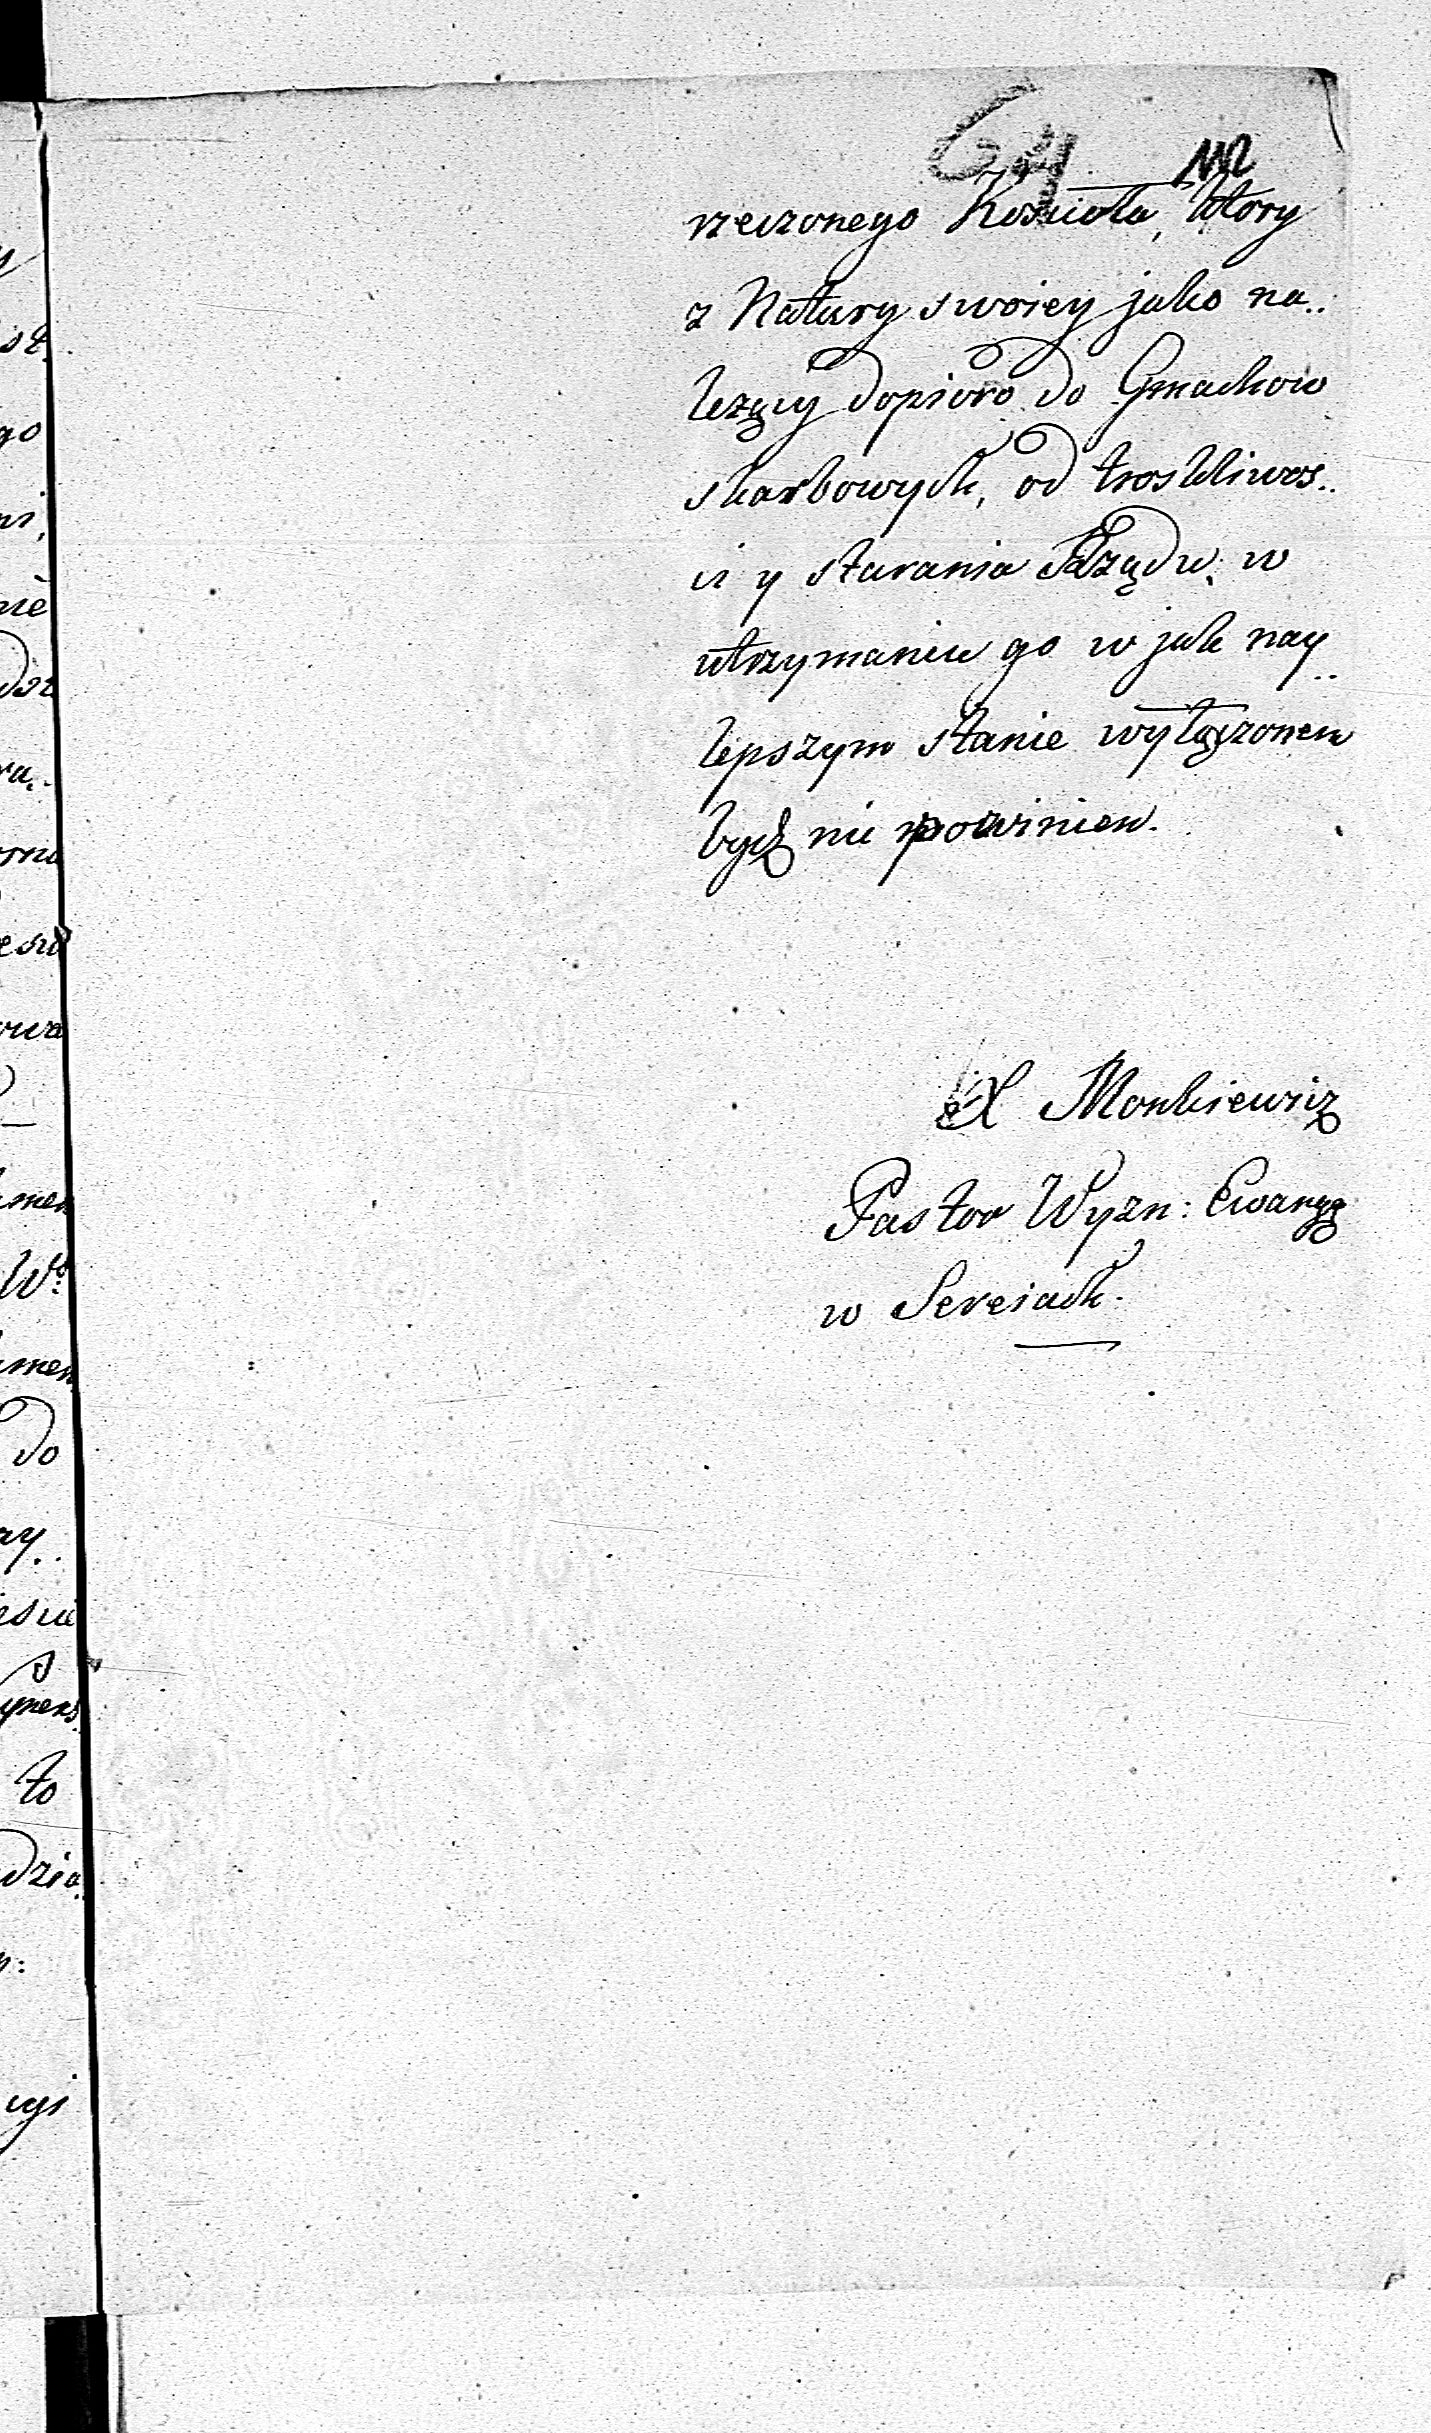 64 112
rzeczonego Kościoła, który
z Natury swoiey jako na..
leżący dopioro do Gmachow
skarbowych, od troskliwos..
ci y starania Rządu, w
utrzymaniu go w jak nay..
lepszym stanie wyłączonem
bydź nie powinien.
X Monkiewicz
Pastor Wyzn: Ewang
w Sereiach.